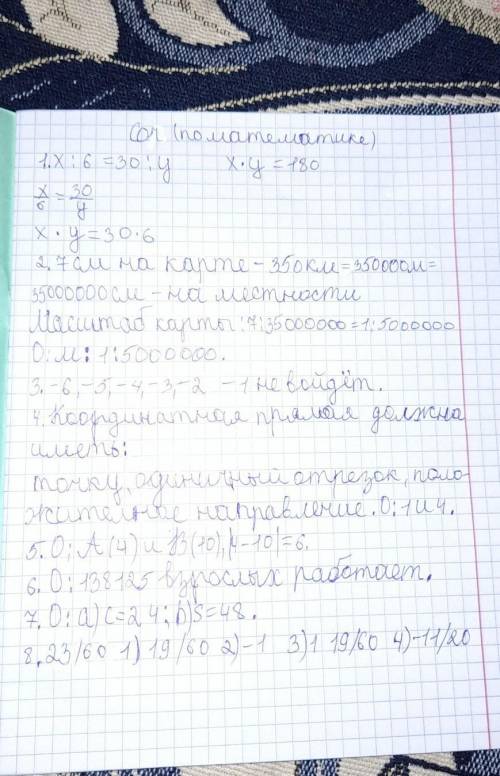 Соч (по математике)
1. x : 6 = 30 : y x · y = 180
x/6 = 30/y
x · y = 30 · 6
2. 7 см на карте - 350 км = 350000 м =
35000000 см - на местности
Масштаб карты: 7:35000000 = 1:5000000
О: м: 1:5000000.
3. -6, -5, -4, -3, -2 -1 не войдёт.
4. Координатная прямая должна
иметь:
точку, единичный отрезок, поло-
жительное направление. О: 1 и 4.
5. О: А(4) и В(10), |4-10| = 6.
6. О: 138125 взрослых работает.
7. О: а) С=2,4; b) S=48.
8. 23/60 1) 19/60 2) -1 3) 1 19/60 4) -11/20